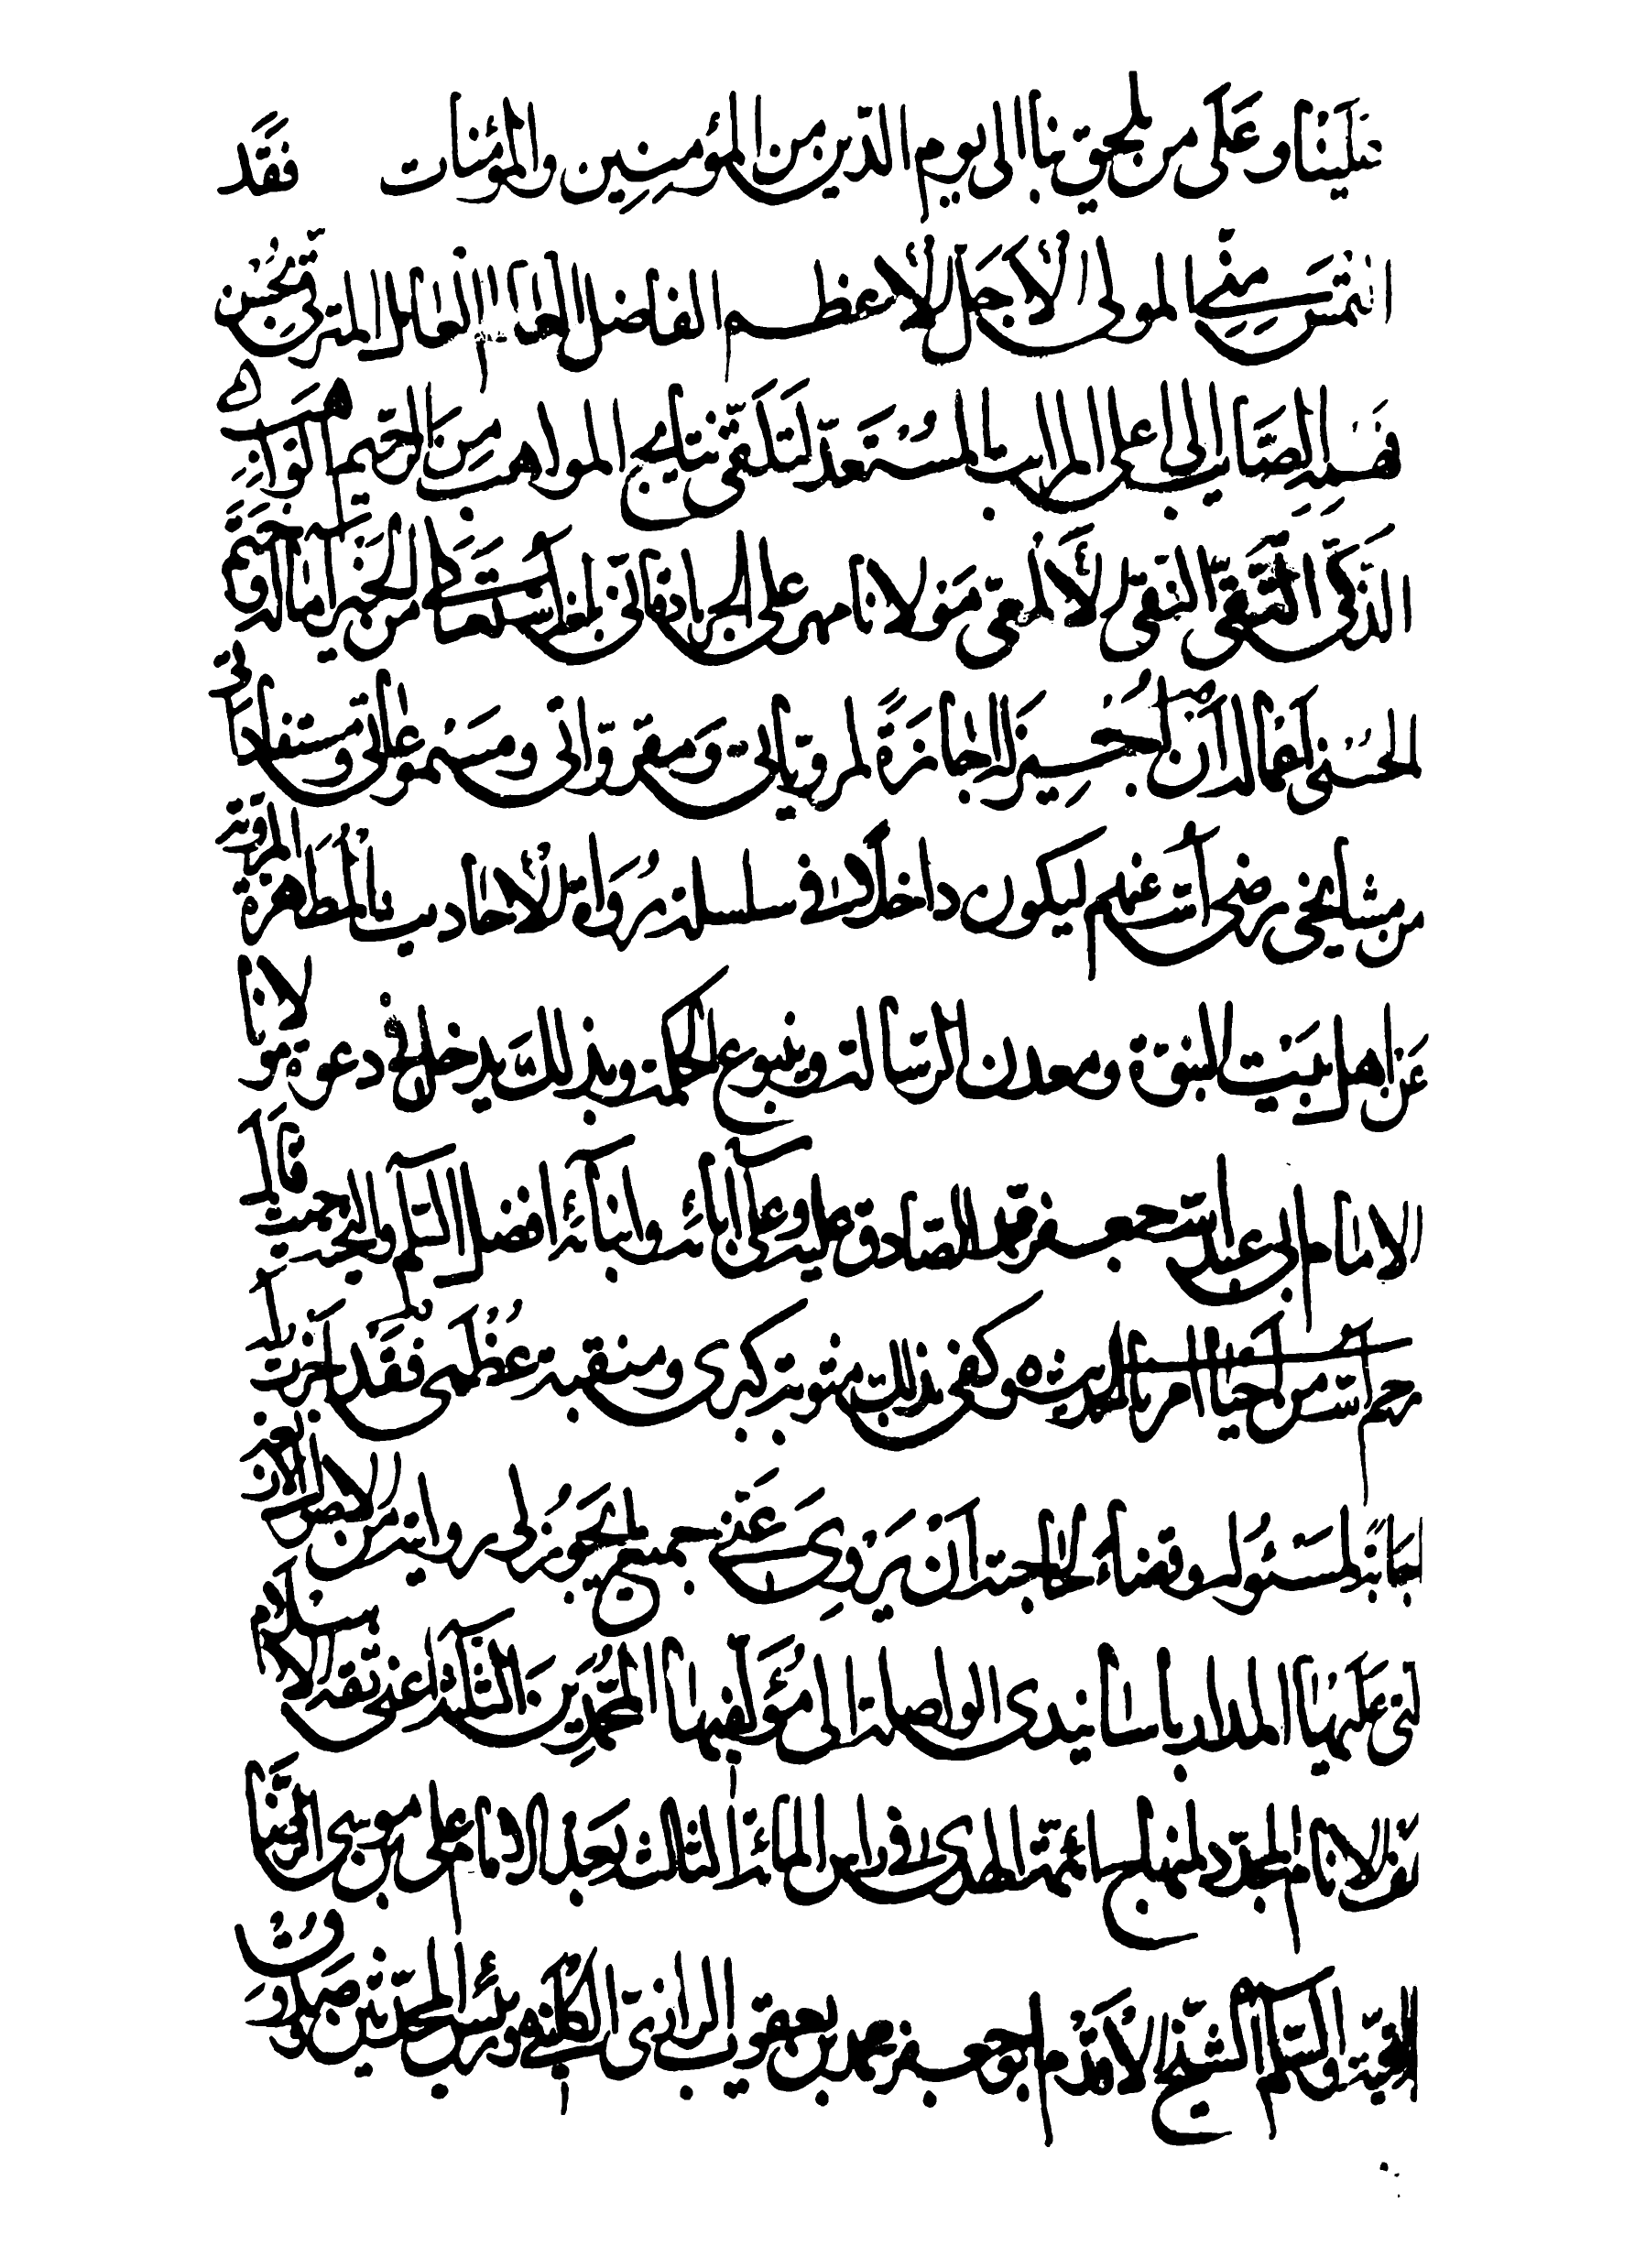 علينا وعلى من يلحق بنا الى يوم الدين من المؤمنين والمؤمنات فقد
التمس منّي المولى الأجل الأعظم الفاضل العالم العامل المترقي بحسن
فهمه الصّايب الى اعلى المراتب المستعدّ لتلقّى نتايج المواهب من الرّحيم الوهّاب
الذكىّ التّقىّ النقىّ الألمعى مولانا مهر على الجرفادقانى بلغه اللّه من الخير اما له وختم
الحسنى اعماله أن أجيز له اجازةً لمروياتى ومقرواتى ومسموعاتى ومستفاداتى
من مشايخى رضى اللّه عنهم ليكون داخلا فى سلسلة رواة الأحاديث المطهرة المروية
عن اهل بيت النبوّة ومعدن الرّسالة وينبوع الحكمة وبذلك يدخل فى دعوة مولانا
الامام ابى عبد اللّه جعفر بن محمد الصّادق عليه وعلى آبائه وابنائه افضل السّلم والتحيت قال
رحم اللّه من احيا امرنا وكفى بذلك مثوبة كبرى ومنقبة عظمى فقد اجزت له
لمسئوله وقضاء لحاجته أن يروى عنّى جميع ما يجوز لى روايته من الاصول
لتى عليها المدار باسانيدى الواصلة الى مؤلّفيها المحمّدين الثّلثة اعنى ثقة الاسلام
مولانا المجدّد لمنهاج ائمّة الهدى فى راس المائة الثالث بعد الامام على بن موسى الرّضا
التحيّة والسّلم الشيخ الأقدم ابو جعفر محمد بن يعقوب الرازىّ الكلينى ورئيس المحدّثين صدوق